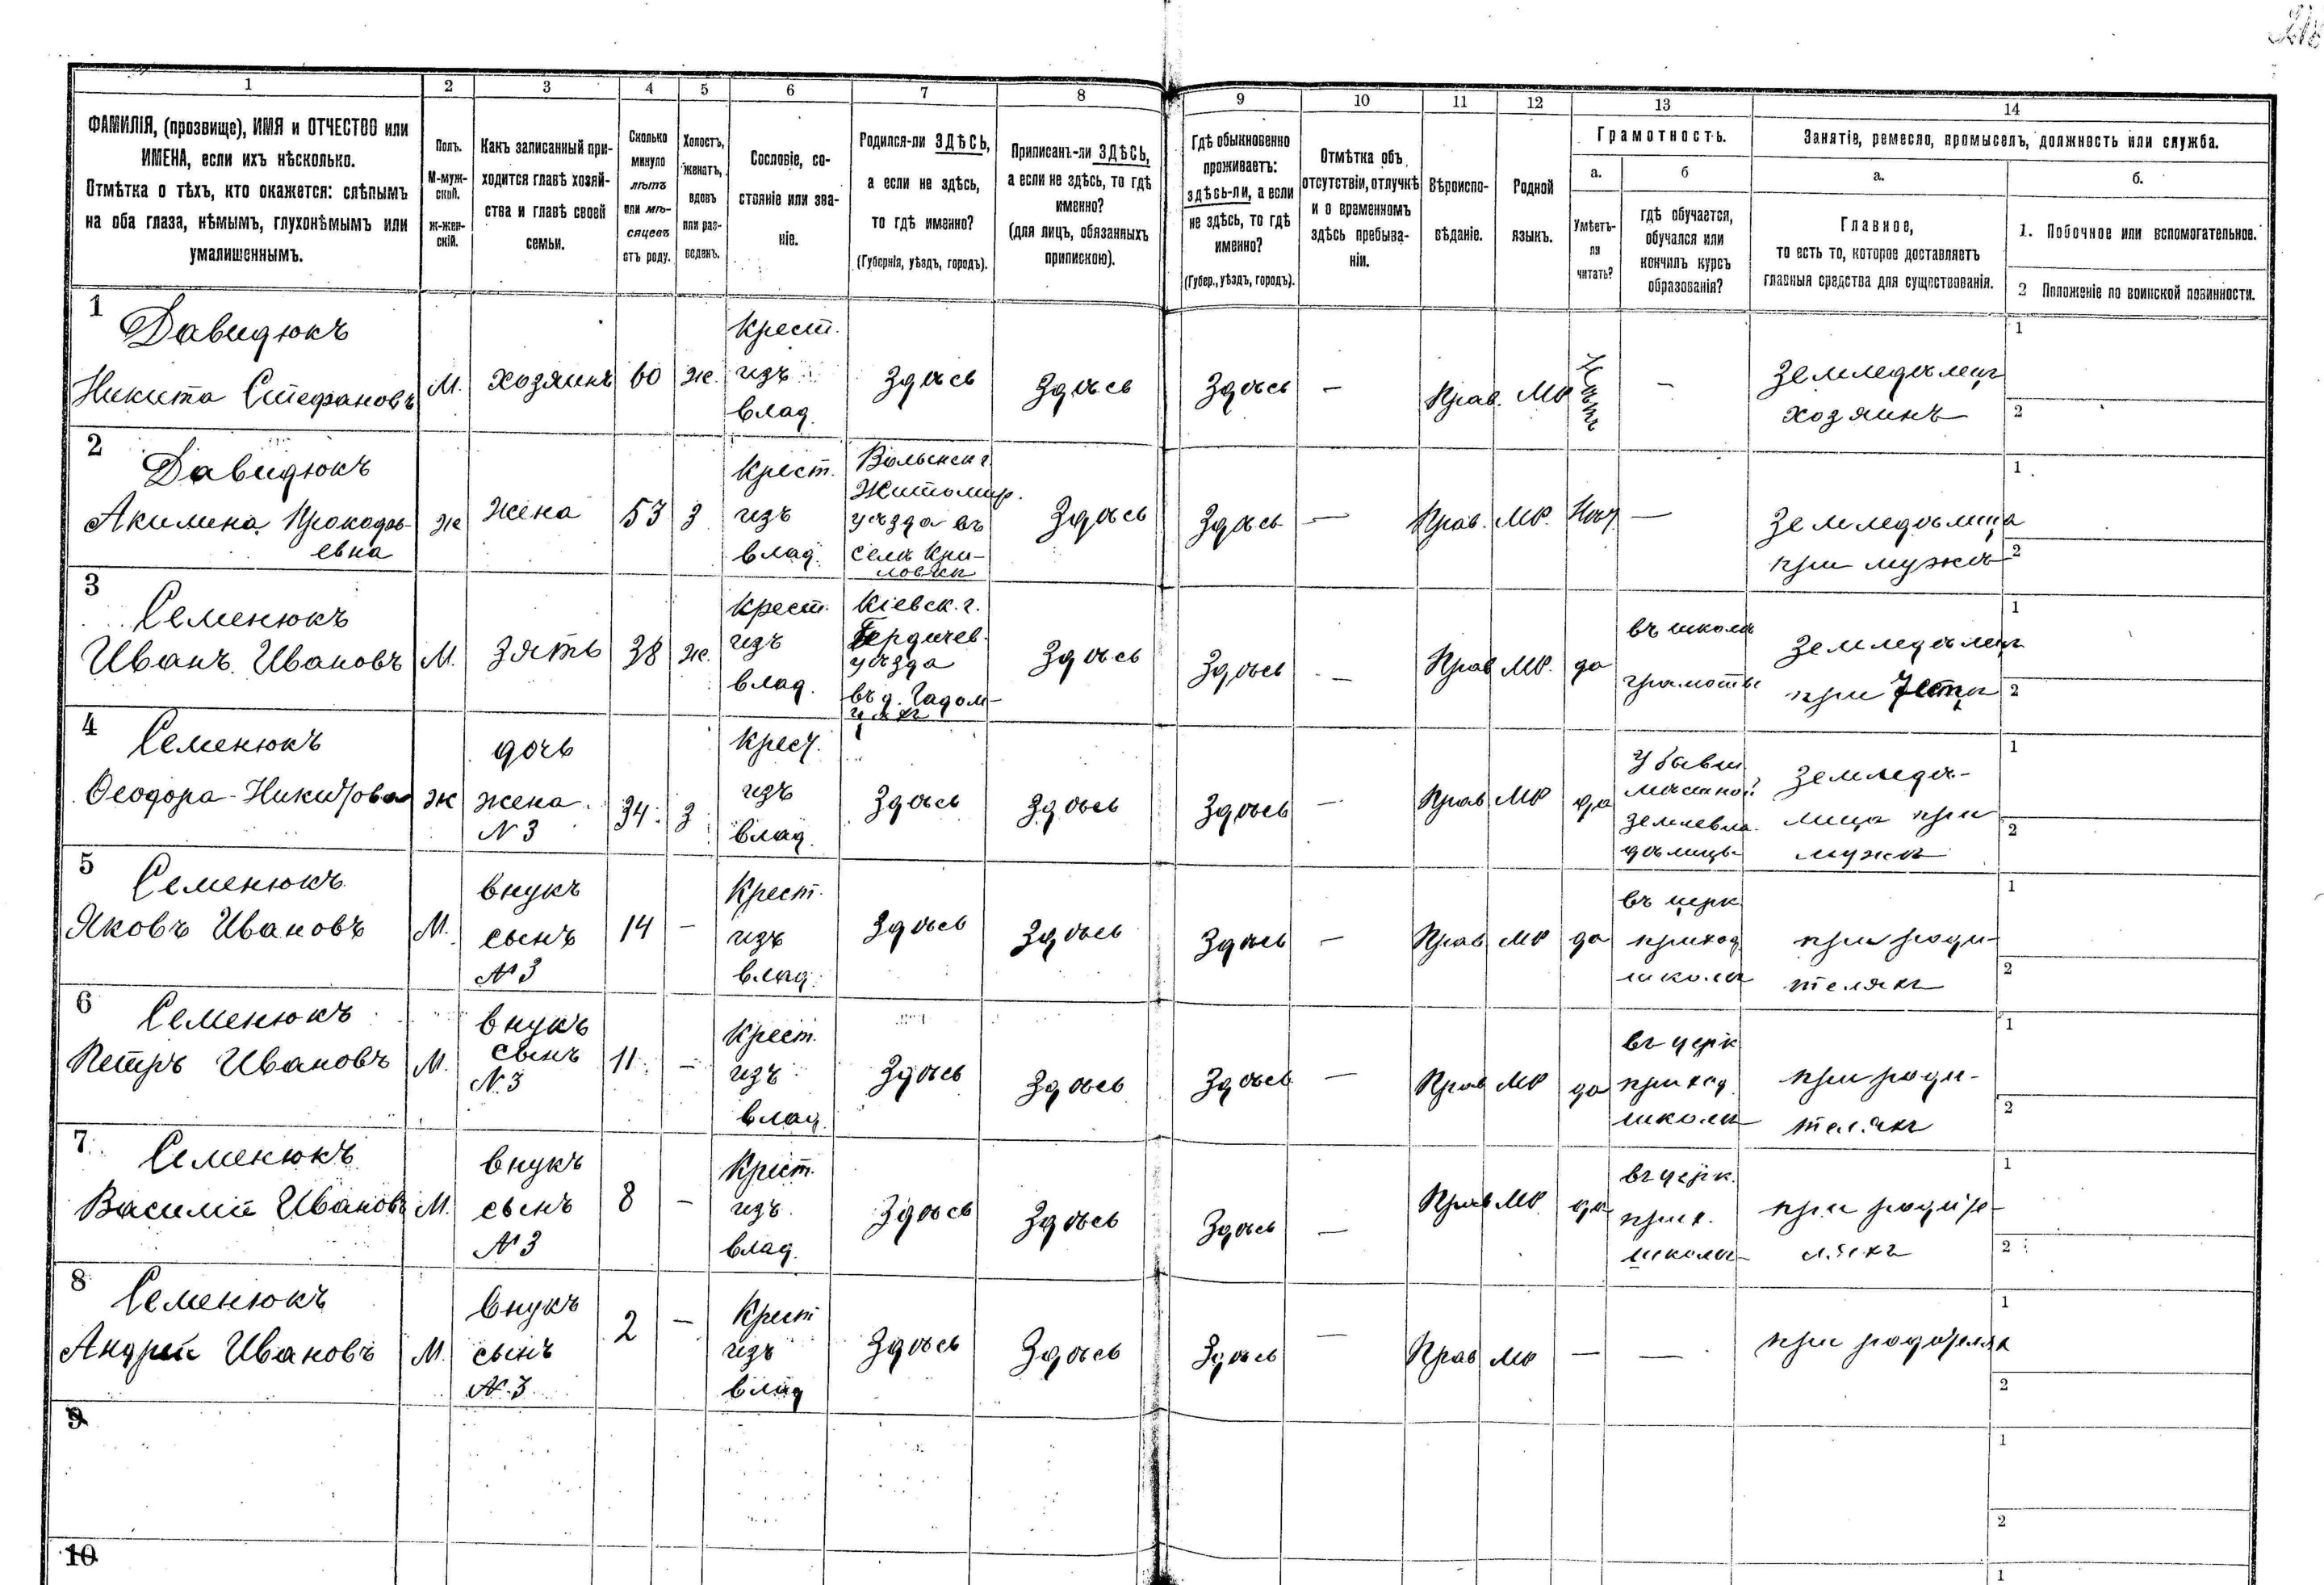 1 2 3 4 5 6 7 8 9 10 11 12 13 14
ФАМИЛІЯ, (прозвище), ИМЯ и ОТЧЕСТВО или
ИМЕНА, если ихъ нѣсколько.
Отмѣтка о тѣхъ, кто окажется: слѣпымъ
на оба глаза, нѣмымъ, глухонѣмымъ или
умалишеннымъ.
Полъ.
М-муж-
ской.
Ж-жен-
скій.
Какъ записанный при-
ходится главѣ хозяй-
ства и главѣ своей
семьи.
Сколько
минуло
лѣтъ
или мѣ-
сяцевъ
отъ роду.
Холостъ,
женатъ,
вдовъ
или раз-
веденъ.
Сословіе, со-
стояніе или зва-
ніе.
Родился-ли ЗДѢСЬ,
а если не здѣсь,
то гдѣ именно?
(Губернія, уѣздъ, городъ).
Приписанъ-ли ЗДѢСЬ,
а если не здѣсь, то гдѣ
именно?
(для лицъ, обязанныхъ
припискою).
Гдѣ обыкновенно
проживаетъ:
здѣсь-ли, а если
не здѣсь, то гдѣ
именно?
(Губер., уѣздъ, городъ).
Отмѣтка объ
отсутствіи, отлучкѣ
и о временномъ
здѣсь пребыва-
ніи.
Вѣроиспо-
вѣданіе.
Родной
языкъ.
Грамотность.
а.
Умѣетъ-
ли
читать?
б
гдѣ обучается,
обучался или
кончилъ курсъ
образованія?
Занятіе, ремесло, промыселъ, должность или служба.
а.
Главное,
то есть то, которое доставляетъ
главныя средства для существованія.
б.
1. Побочное или вспомогательное.
2 Положеніе по воинской повинности.
1
Давидюкъ
Никита Стефановъ
М.
хозяинъ
60
ж.
Крест.
изъ
влад.
Здѣсь
Здѣсь
Здѣсь
—
Прав.
МР
Нѣтъ
—
Земледѣлецъ
хозяинъ
1
2
2
Давидюкъ
Акилина Прокофь-
евна
ж
жена
53
з
Крест.
изъ
влад.
Волынск г.
Житомир.
уѣзда въ
Здѣсь
Здѣсь
—
Прав.
МР.
—
Земледѣлица
при мужѣ
1
2
3
Семенюкъ
Иванъ Ивановъ
М.
зять
38
ж.
Крест.
изъ
влад.
Кіевск. г.
Бердичев.
уѣзда
Здѣсь
Здѣсь
—
Прав
МР.
да
въ школѣ
грамоты
Земледѣлец
при Тестѣ
1
2
4
Семенюкъ
Ѳеодора Никитова
ж
дочь
жена
N 3
34
з
Крест.
изъ
влад.
Здѣсь
Здѣсь
Здѣсь
—
Прав
МР
да
У бывш.
мѣстной
землевла-
дѣлицы
Земледѣ-
лица при
мужѣ
1
2
5
Семенюкъ
Яковъ Ивановъ
М.
внукъ
сынъ
N 3
14
—
Крест.
изъ
влад.
Здѣсь
Здѣсь
Здѣсь
—
Прав
МР
да
въ церк
приход
школѣ
при роди-
теляхъ
1
2
6
Семенюкъ
Петръ Ивановъ
М.
внукъ
сынъ
N 3
11
—
Крест.
изъ
влад.
Здѣсь
Здѣсь
Здѣсь
—
Прав
МР
да
въ церк
приход
школѣ
при роди-
теляхъ
1
2
7
Семенюкъ
Василій Ивановъ
М.
внукъ
сынъ
N 3
8
—
Крест.
изъ
влад.
Здѣсь
Здѣсь
Здѣсь
—
Прав
МР
да
въ церк.
прих.
школѣ
при родите-
ляхъ
1
2
8
Семенюкъ
Андрей Ивановъ
М.
внукъ
сынъ
N. 3
2
—
Крест
изъ
влад
Здѣсь
Здѣсь
Здѣсь
—
Прав
МР
—
—
при родителях
1
2
9
1
2
10
1